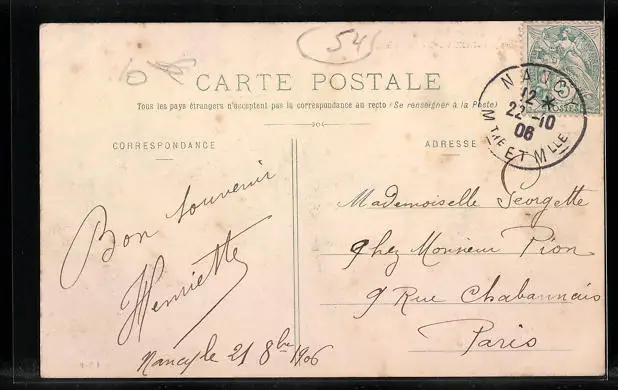 54
CARTE POSTALE
Tous les pays étrangers n'acceptent pas la correspondance au recto (Se renseigner à la Poste)
CORRESPONDANCE
ADRESSE
NANCY
12 *
22-10
06
MTHE ET MLLE
Bon souvenir
Henriette
Nancy le 21 8bre 1906
Mademoiselle Georgette
Chez Monsieur Pion
9 Rue Chabannais
Paris